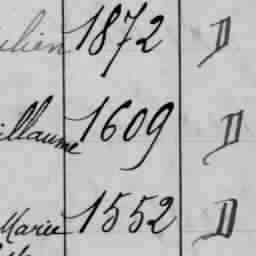 ulien 1872 D
illaume 1609 D
Marie 1552 D